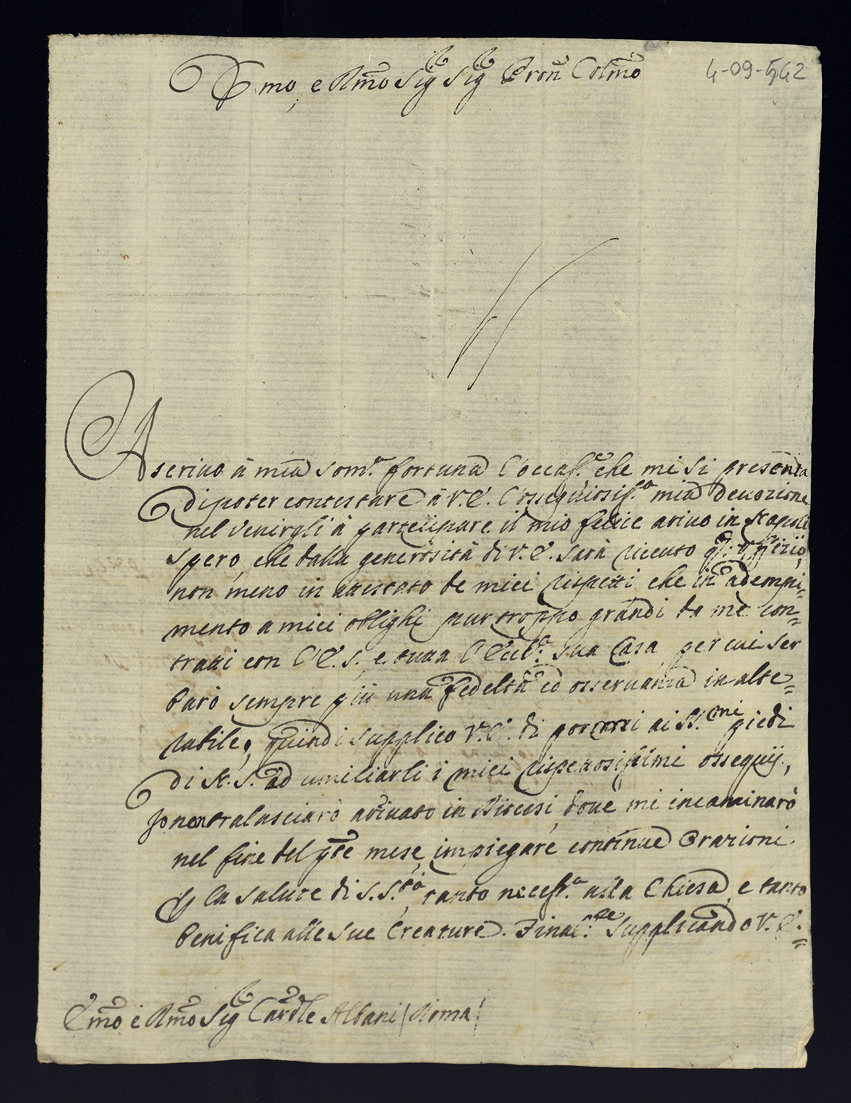 Emo, e Rmo Sig Sig Pron Colmo
4-09-542
Ascrivo à mia som.a fortuna l'occas.e che mi si presenta
di poter contestare à V.E. l'ossequiosiss.a mia devozione
nel venirgli à partecipare il mio felice arivo in Napoli
spero, che dalla generosità di V.E. sarà ricevuto q.to offizio,
non meno in attestato de miei rispetti che in adempi-
mento a miei oblighi pur troppo grandi da me con=
tratti con l'E.S. e tutta l'Ecc.ma sua Casa, per cui ser
barò sempre più una fedeltà ed osservanza in alte=
rabile, quindi supplico V.E. di pormi ai SS.mi piedi
di N.S. ad umiliarli i miei rispettosissimi ossequij,
Io non tralasciarò arivato in Diocesi, dove mi incaminarò
nel fine del pnte mese, impiegare continue Orazioni
per la salute di S.S.tà, tanto necess.a alla Chiesa, e tanto
benifica alle sue Creature. Finalm.te supplicando V.E.=
Emo e Rmo Sig Cardle Albani (Roma)